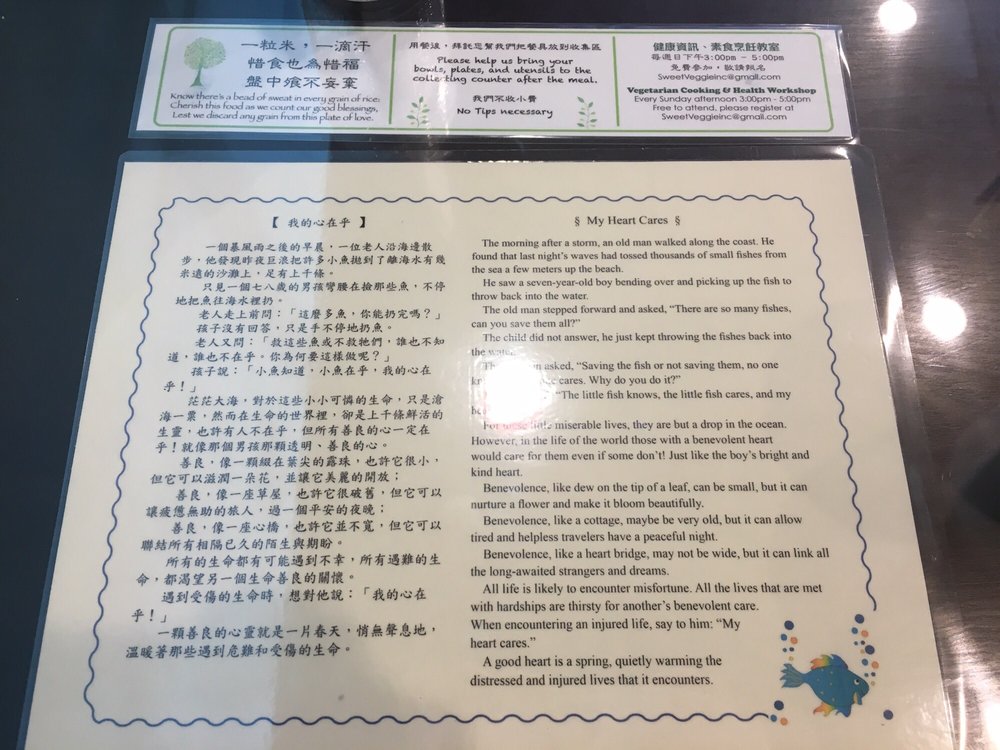 一粒米，一滴汗
惜食也為惜福
盤中飱不妄棄
Know there's a bead of sweat in every grain of rice;
Cherish this food as we count our good blessings,
Lest we discard any grain from this plate of love.
用餐後，拜託您幫我們把餐具放到收集區
Please help us bring your
bowls, plates, and utensils to the
collecting counter after the meal.
我們不收小費
No Tips necessary
健康資訊、素食烹飪教室
每週日下午3:00pm - 5:00pm
免費參加，敬請報名
SweetVeggieinc@gmail.com
Vegetarian Cooking & Health Workshop
Every Sunday afternoon 3:00pm - 5:00pm
Free to attend, please register at
SweetVeggieinc@gmail.com
【 我的心在乎 】
一個暴風雨之後的早晨，一位老人沿海邊散
步，他發現昨夜巨浪把許多小魚拋到了離海水有幾
米遠的沙灘上，足有上千條。
只見一個七八歲的男孩彎腰在撿那些魚，不停
地把魚往海水裡扔。
老人走上前問：「這麼多魚，你能扔完嗎？」
孩子沒有回答，只是手不停地扔魚。
老人又問：「救這些魚或不救牠們，誰也不知
道，誰也不在乎。你為何要這樣做呢？」
孩子說：「小魚知道，小魚在乎，我的心在
乎！」
茫茫大海，對於這些小小可憐的生命，只是滄
海一粟，然而在生命的世界裡，卻是上千條鮮活的
生靈，也許有人不在乎，但所有善良的心一定在
乎！就像那個男孩那顆透明、善良的心。
善良，像一顆綴在葉尖的露珠，也許它很小，
但它可以滋潤一朵花，並讓它美麗的開放；
善良，像一座草屋，也許它很破舊，但它可以
讓疲憊無助的旅人，過一個平安的夜晚；
善良，像一座心橋，也許它並不寬，但它可以
聯結所有相隔已久的陌生與期盼。
所有的生命都有可能遇到不幸，所有遇難的生
命，都渴望另一個生命善良的關懷。
遇到受傷的生命時，想對他說：「我的心在
乎！」
一顆善良的心靈就是一片春天，悄無聲息地，
溫暖著那些遇到危難和受傷的生命。
§ My Heart Cares §
The morning after a storm, an old man walked along the coast. He
found that last night's waves had tossed thousands of small fishes from
the sea a few meters up the beach.
He saw a seven-year-old boy bending over and picking up the fish to
throw back into the water.
The old man stepped forward and asked, “There are so many fishes,
can you save them all?”
The child did not answer, he just kept throwing the fishes back into
the water.
asked, “Saving the fish or not saving them, no one
cares. Why do you do it?”
“The little fish knows, the little fish cares, and my
For these little miserable lives, they are but a drop in the ocean.
However, in the life of the world those with a benevolent heart
would care for them even if some don't! Just like the boy's bright and
kind heart.
Benevolence, like dew on the tip of a leaf, can be small, but it can
nurture a flower and make it bloom beautifully.
Benevolence, like a cottage, maybe be very old, but it can allow
tired and helpless travelers have a peaceful night.
Benevolence, like a heart bridge, may not be wide, but it can link all
the long-awaited strangers and dreams.
All life is likely to encounter misfortune. All the lives that are met
with hardships are thirsty for another's benevolent care.
When encountering an injured life, say to him: “My
heart cares.”
A good heart is a spring, quietly warming the
distressed and injured lives that it encounters.